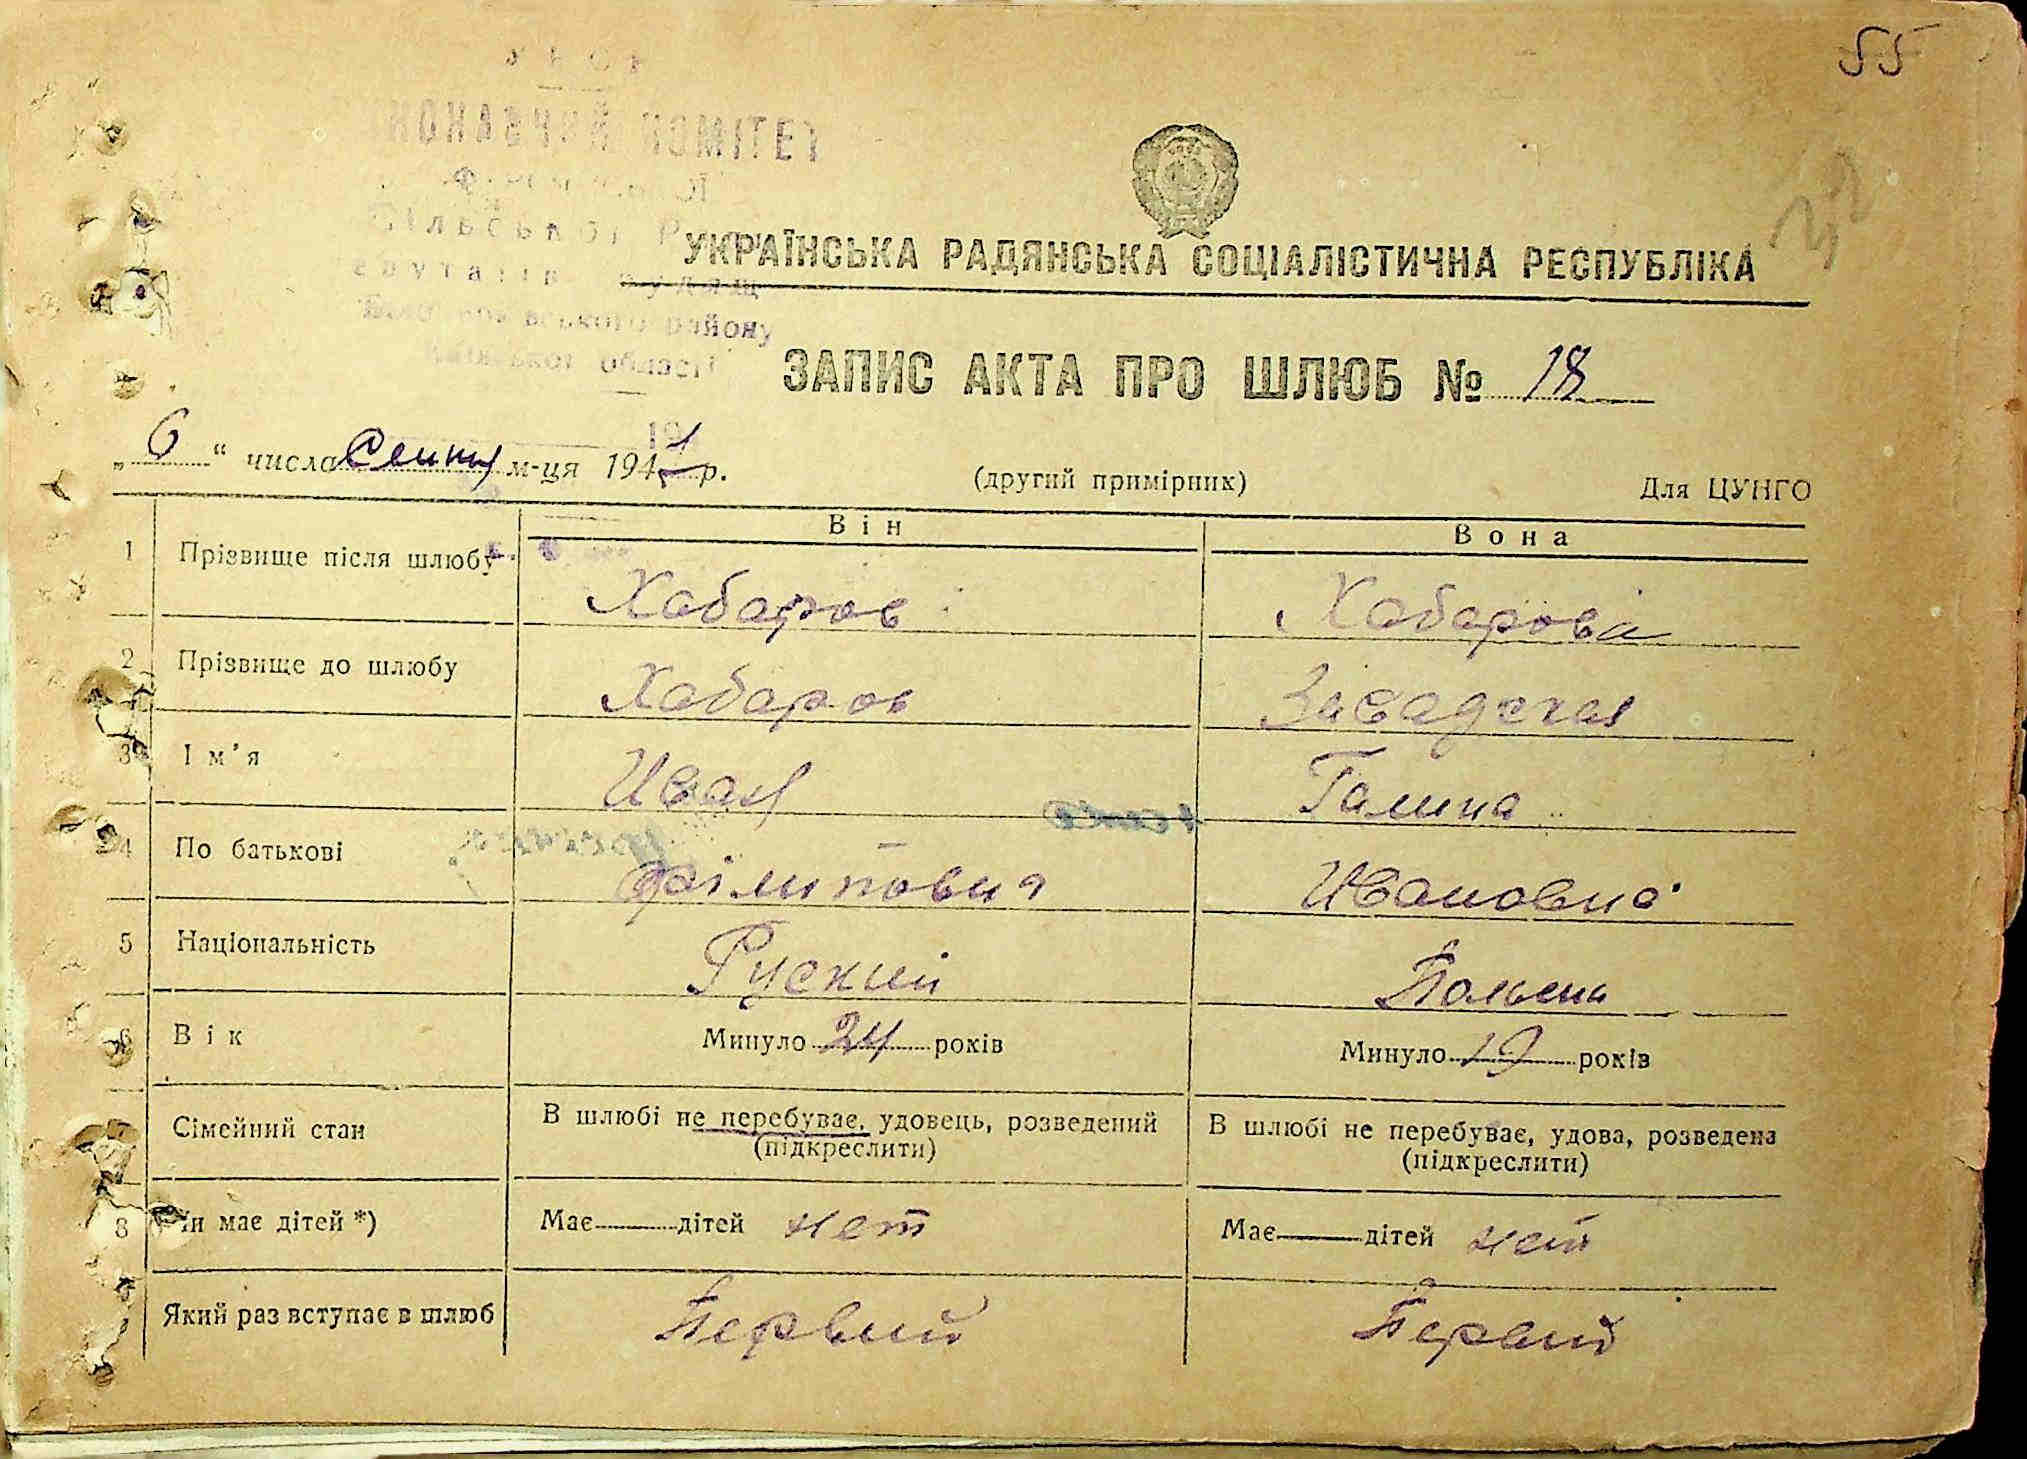 55
КОМІТЕТ
Сільської
району
області
УКРАЇНСЬКА РАДЯНСЬКА СОЦІАЛІСТИЧНА РЕСПУБЛІКА
ЗАПИС АКТА ПРО ШЛЮБ № 18
„ 6 “ числа Сентя м-ця 194 р.
(другий примірник)
Для ЦУНГО
Він Вона
1 Прізвище після шлюбу Хабаров Хабарова
2 Прізвище до шлюбу Хабаров Завадская
3 Ім’я Иван Галина
4 По батькові Філипович Ивановна
5 Національність Руский
6 Вік Минуло 24 років Минуло 19 років
7 Сімейний стан В шлюбі не перебуває, удовець, розведений В шлюбі не перебуває, удова, розведена
(підкреслити) (підкреслити)
8 Чи має дітей *) Має дітей нет Має дітей нет
Який раз вступає в шлюб Первий Первий